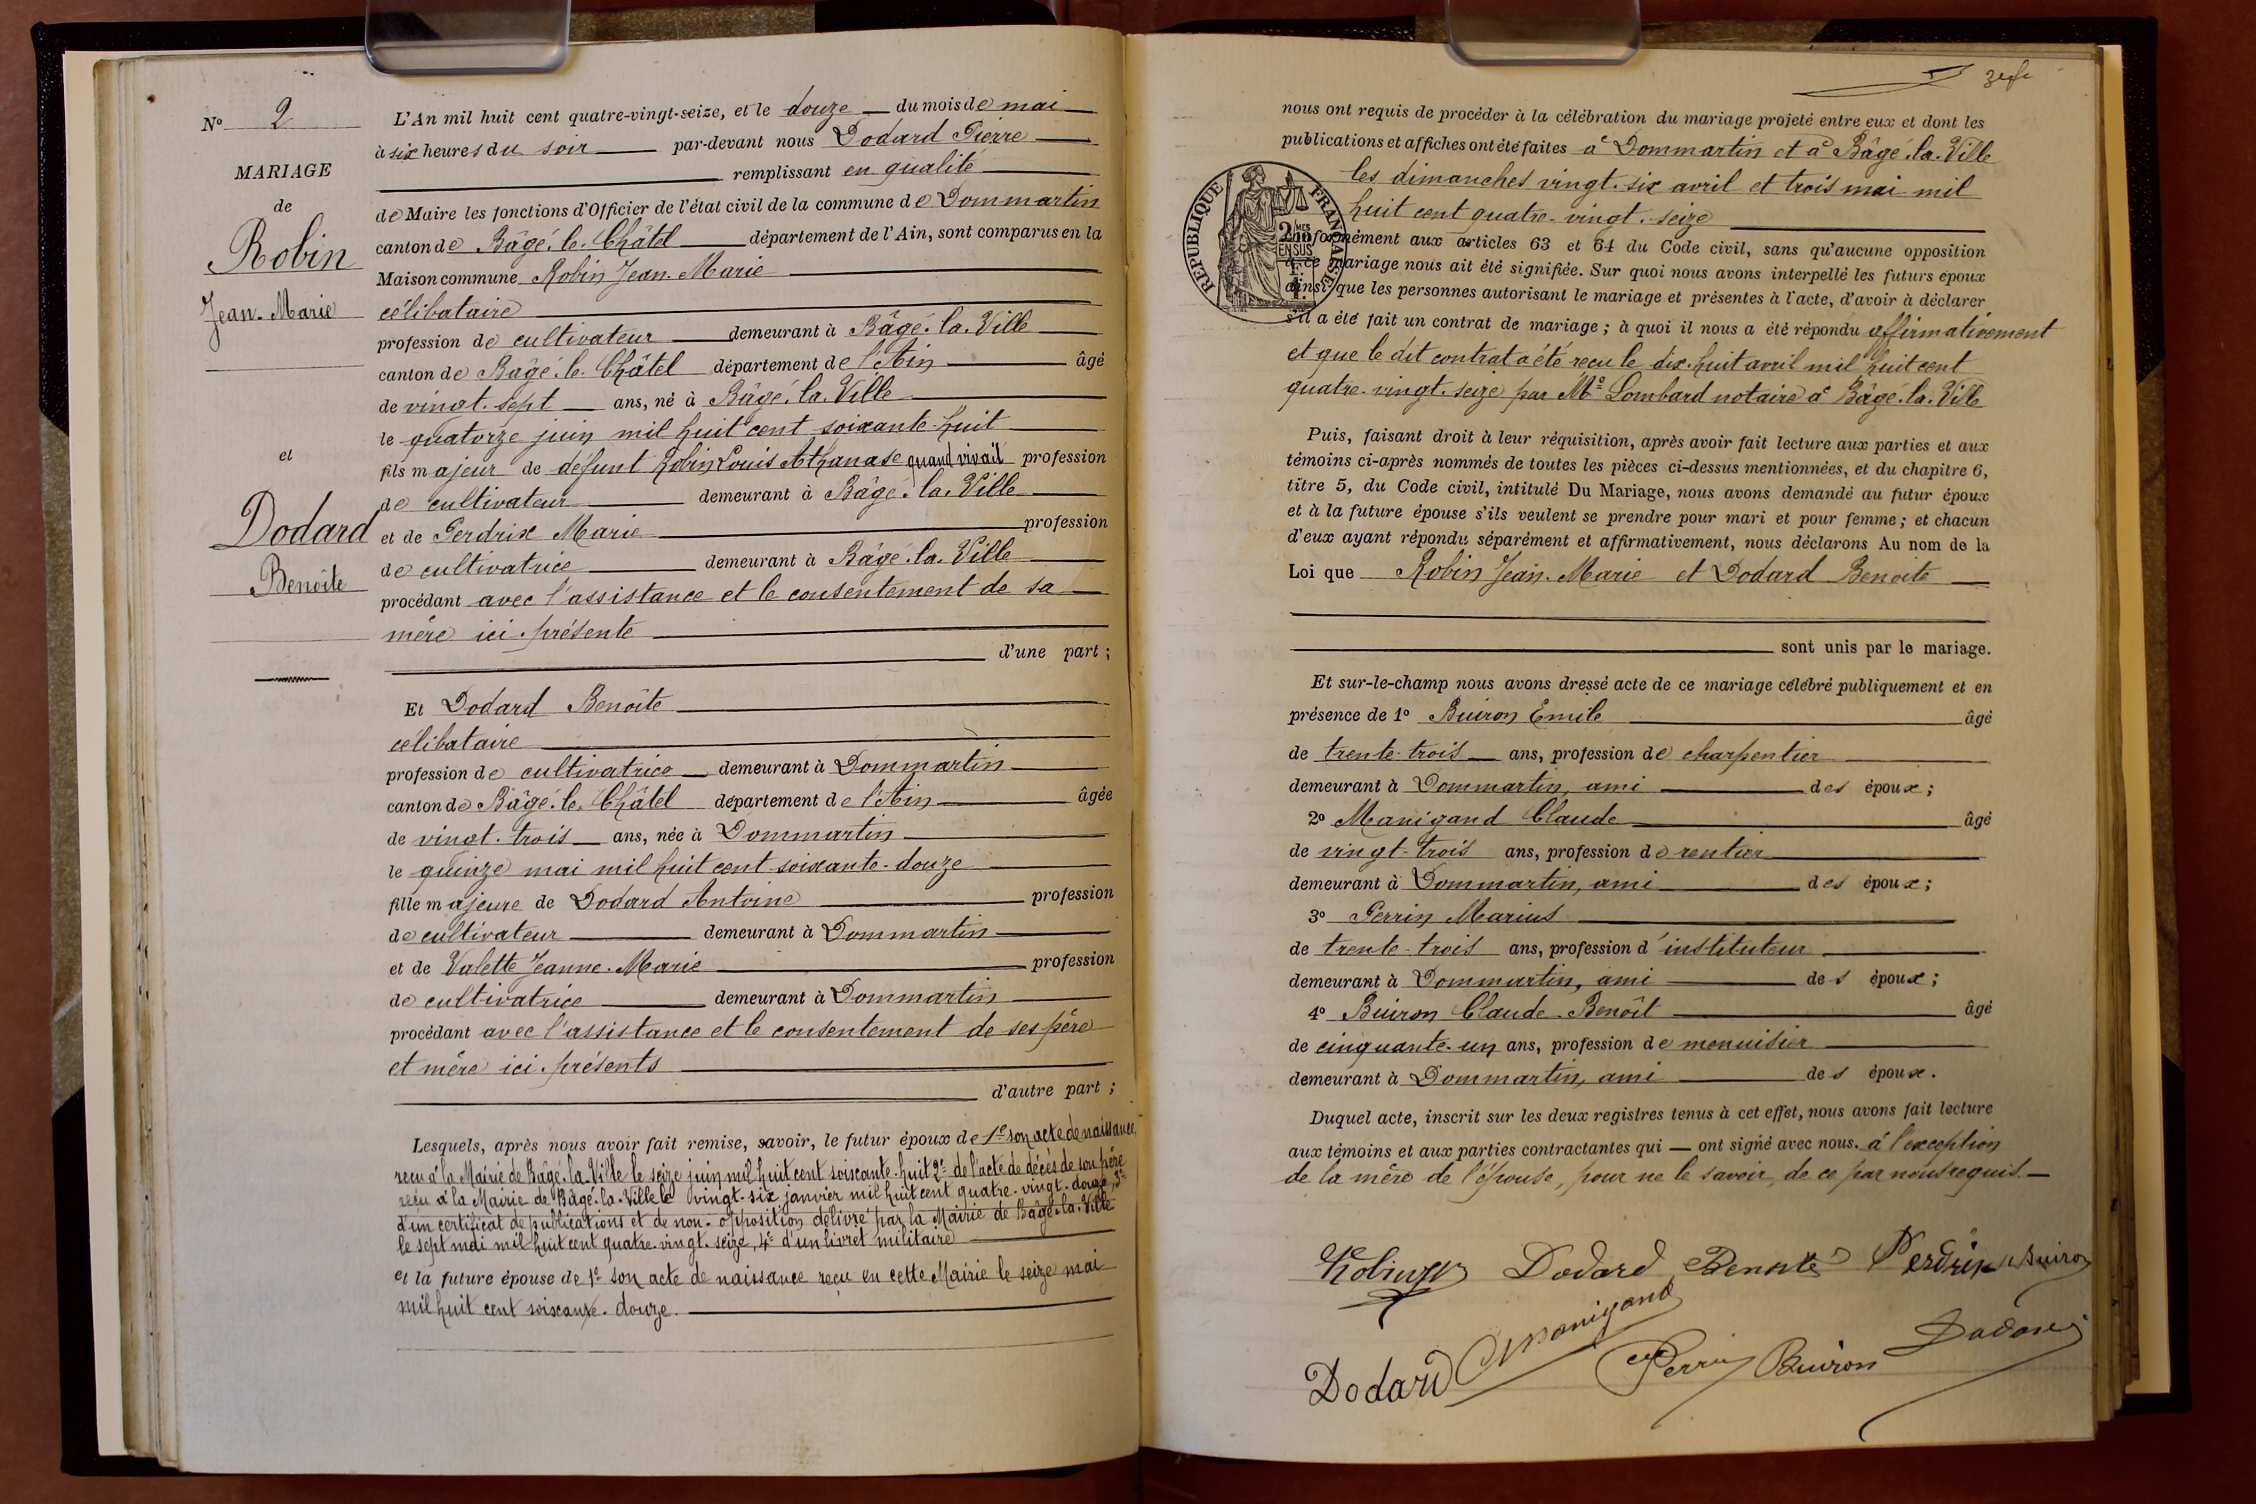 Nº 2
MARIAGE
de
Robin
Jean-Marie
et
Dodard
Benoîte
L'An mil huit cent quatre-vingt-seize, et le douze du mois de mai
à six heures du soir par-devant nous Dodard Pierre
remplissant en qualité
de Maire les fonctions d'Officier de l'état civil de la commune de Dommartin
canton de Bâgé-le-Châtel département de l'Ain, sont comparus en la
Maison commune Robin Jean-Marie
célibataire
profession de cultivateur demeurant à Bâgé-la-Ville
canton de Bâgé-le-Châtel département de l'Ain âgé
de vingt-sept ans, né à Bâgé-la-Ville
le quatorze juin mil huit cent soixante-huit
fils majeur de défunt Robin Louis Athanase quand vivait profession
de cultivateur demeurant à Bâgé-la-Ville
et de Perdrix Marie profession
de cultivatrice demeurant à Bâgé-la-Ville
procédant avec l'assistance et le consentement de sa
mère ici présente
d'une part ;
Et Dodard Benoîte
célibataire
profession de cultivatrice demeurant à Dommartin
canton de Bâgé-le-Châtel département de l'Ain âgée
de vingt-trois ans, née à Dommartin
le quinze mai mil huit cent soixante-douze
fille majeure de Dodard Antoine profession
de cultivateur demeurant à Dommartin
et de Valette Jeanne-Marie profession
de cultivatrice demeurant à Dommartin
procédant avec l'assistance et le consentement de ses père
et mère ici présents
d'autre part ;
Lesquels, après nous avoir fait remise, savoir, le futur époux de 1º son acte de naissance
reçu à la Mairie de Bâgé-la-Ville le seize juin mil huit cent soixante-huit 2º de l'acte de décès de son père
reçu à la Mairie de Bâgé-la-Ville le vingt-six janvier mil huit cent quatre-vingt-douze, 3º
d'un certificat de publications et de non-opposition délivré par la Mairie de Bâgé-la-Ville
le sept mai mil huit cent quatre-vingt-seize, 4º d'un livret militaire
et la future épouse de 1º son acte de naissance reçu en cette Mairie le seize mai
mil huit cent soixante-douze.
nous ont requis de procéder à la célébration du mariage projeté entre eux et dont les
publications et affiches ont été faites à Dommartin et à Bâgé-la-Ville
les dimanches vingt-six avril et trois mai mil
huit cent quatre-vingt-seize
RÉPUBLIQUE FRANÇAISE
2/10MES EN SUS
conformément aux articles 63 et 64 du Code civil, sans qu'aucune opposition
à ce mariage nous ait été signifiée. Sur quoi nous avons interpellé les futurs époux
ainsi que les personnes autorisant le mariage et présentes à l'acte, d'avoir à déclarer
s'il a été fait un contrat de mariage ; à quoi il nous a été répondu affirmativement
et que le dit contrat a été reçu le dix-huit avril mil huit cent
quatre-vingt-seize par Me Lombard notaire à Bâgé-la-Ville
Puis, faisant droit à leur réquisition, après avoir fait lecture aux parties et aux
témoins ci-après nommés de toutes les pièces ci-dessus mentionnées, et du chapitre 6,
titre 5, du Code civil, intitulé Du Mariage, nous avons demandé au futur époux
et à la future épouse s'ils veulent se prendre pour mari et pour femme ; et chacun
d'eux ayant répondu séparément et affirmativement, nous déclarons Au nom de la
Loi que Robin Jean-Marie et Dodard Benoîte
sont unis par le mariage.
Et sur-le-champ nous avons dressé acte de ce mariage célébré publiquement et en
présence de 1º Buiron Emile âgé
de trente-trois ans, profession de charpentier
demeurant à Dommartin, ami des époux ;
2º Manigand Claude âgé
de vingt-trois ans, profession de rentier
demeurant à Dommartin, ami des époux ;
3º Perrin Marius
de trente-trois ans, profession d'instituteur
demeurant à Dommartin, ami des époux ;
4º Buiron Claude-Benoît âgé
de cinquante-un ans, profession de menuisier
demeurant à Dommartin, ami des époux.
Duquel acte, inscrit sur les deux registres tenus à cet effet, nous avons fait lecture
aux témoins et aux parties contractantes qui ont signé avec nous. à l'exception
de la mère de l'épouse, pour ne le savoir, de ce par nous requis.
Robin Dodard Benoite Perdrix Buiron
Dodard Manigand Perrin Buiron Dodard